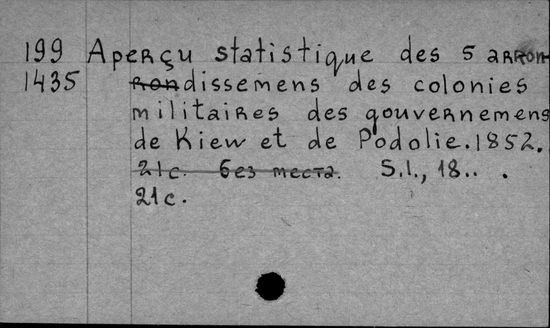 199 Aperçu statistique des 5 arron-
1435 rondissemens des colonies
militaires des gouvernemens
de Kiew et de Podolie. 1852.
21 с. без места. S.l., 18.. .
21 с.